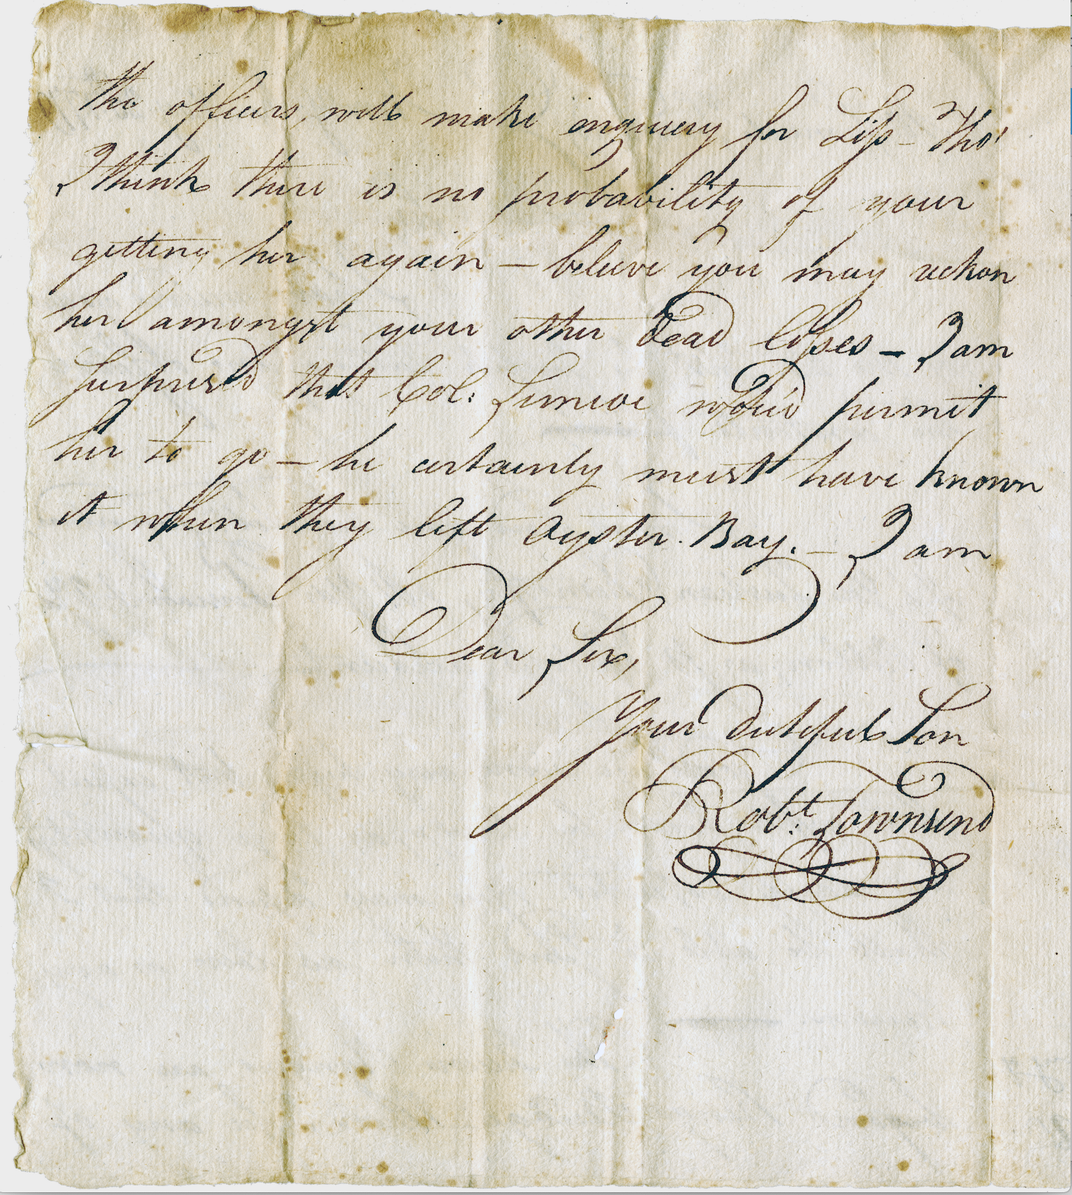 the officers, will make inquiry for Liss – Tho'
I think there is no probability of your
getting her again – beleive you may reckon
her amongst your other dead losses – I am
surprised that Col: Simcoe wou'd permit
her to go – he certainly must have known
it when they left Oyster Bay. – I am
Dear Sir,
Your dutifull Son
Robt. Townsend